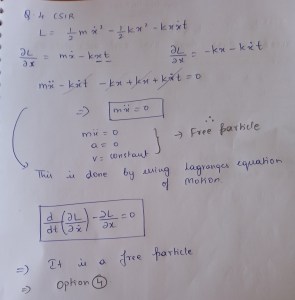 Q 4 CSIR
L = 1/2 m ẋ² - 1/2 k x² - k x ẋ t
∂L/∂ẋ = m ẋ - k x t   ∂L/∂x = -k x - k ẋ t
m ẍ - k ẋ t - k x + k x + k ẋ t = 0
⇒ m ẍ = 0
m ẍ = 0
a = 0
v = constant
→ Free particle
This is done by using Lagranges equation
of motion
d/dt (∂L/∂ẋ) - ∂L/∂x = 0
⇒ It is a free particle
⇒ Option ④